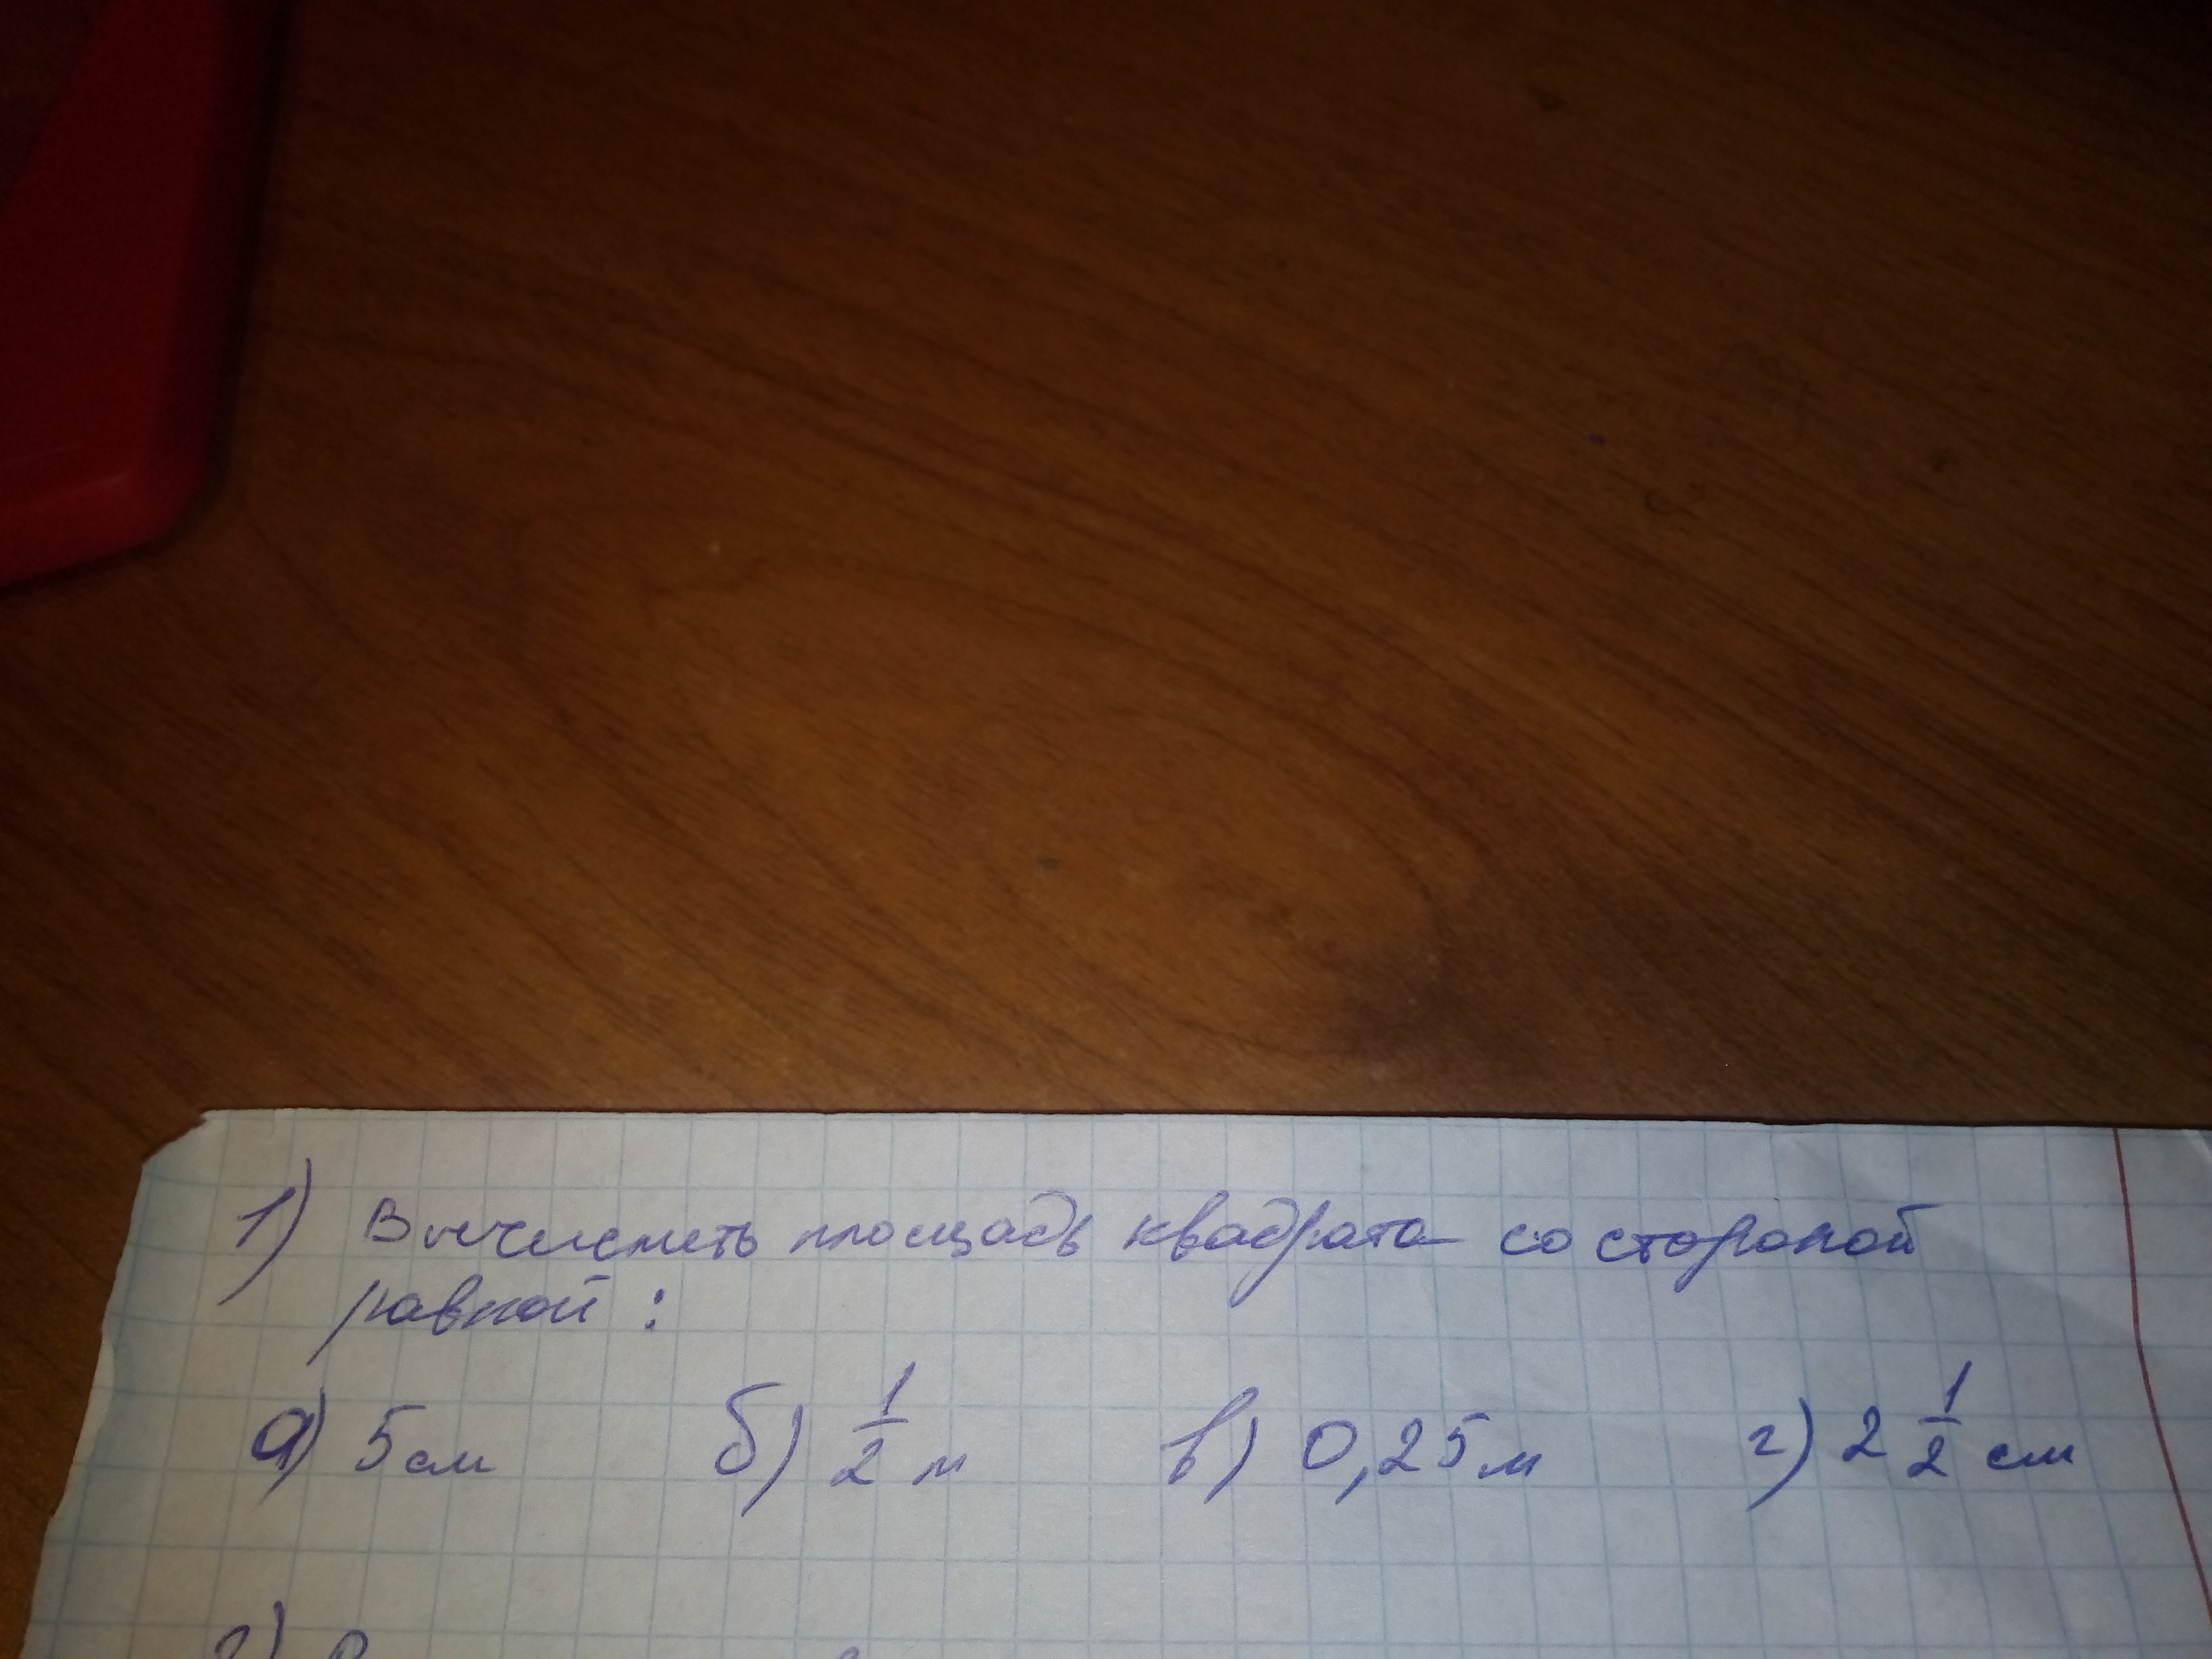 1) Вычислить площадь квадрата со стороной
равной :
а) 5 см б) 1/2 м в) 0,25 м г) 2 1/2 см
2)